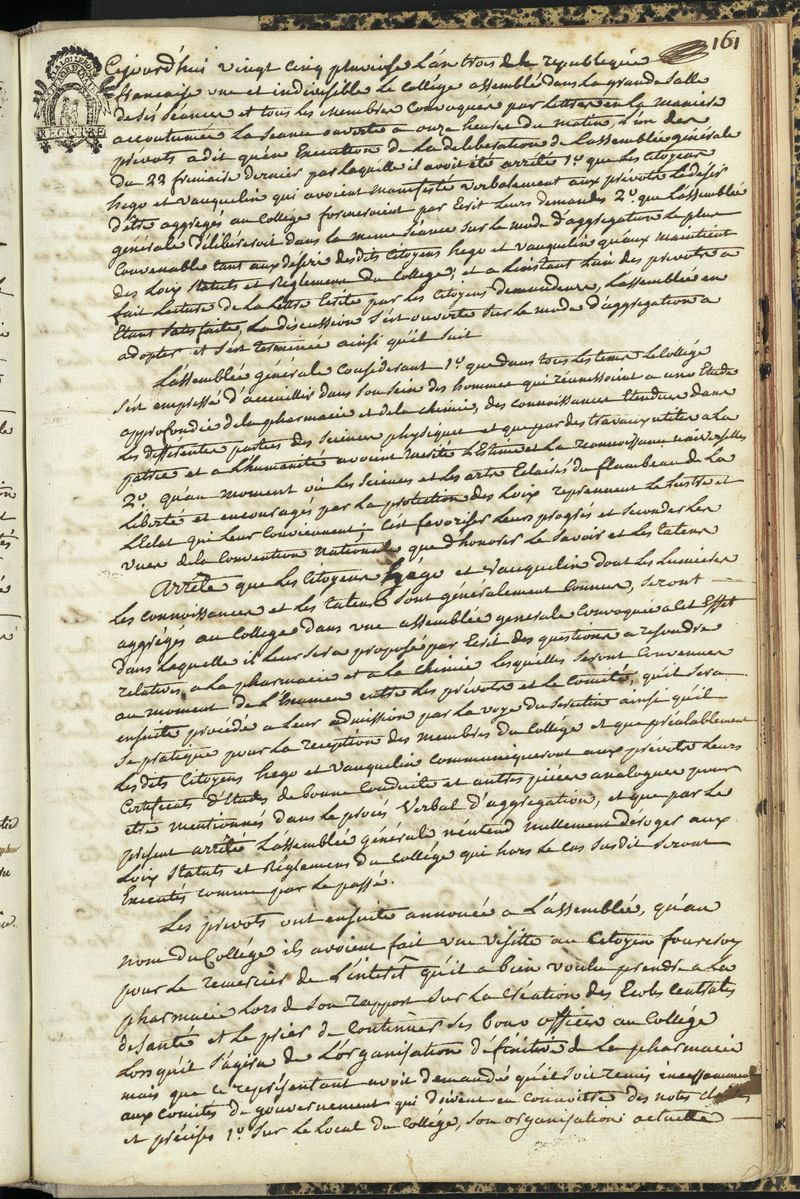 161
LA LOI LE ROI
REGISTRE
Cejourd'hui vingt cinq pluviose L'an trois de la republique
francaise une et indivisible Le Collége assemblé dans la grande Salle
de ses séances et tous les Membres Convoqués par Lettres en la maniere
accoutumée La Seance ouverte a onze heures du matin, L'un des
prévots a dit qu'en Execution de La deliberation de L'assemblée générale
du 22 frimaire dernier par Laquelle il avoit été arrêté 1º. que Les Citoyens
hego et Vauquelin qui avoient manifesté verbalement aux prévots Le desir
d'être aggregés au College formeroient par Ecrit Leurs demandes 2º. que L'assemblée
générale délibéreroit dans la même séance Sur Le mode d'aggregation Le plus
Convenable tant aux desirs desdits Citoyens hego et Vauquelin qu'aux maintient
des Loix Statuts et Réglemens du College, et a L'instant L'un des prevots a
fait Lecture de La Lettre Ecrite par les Citoyens demandeurs, L'assemblée en
Etant Satisfaite, La discussion S'est ouverte Sur Le mode d'aggregation a
adopter et S'est terminée ainsi qu'il Suit
L'assemblée générale Considerant 1º. que dans tous Les tems Le Collége
S'est empressé d'accueillir dans Son Sein des hommes qui réunissoient a une Etude
approfondie de la pharmacie et de la chimie, des connoissances Etendues dans
Les différentes parties des Sciences physiques et que par des travaux utiles a La
patrie et a L'humanité avoient merité L'Estime et La reconnoissance universelles
2º. qu'au moment où Les Sciences et Les arts Eclairés du flambeau de La
Liberté et encouragés par La protection des Loix reprennent Le Lustre et
L'Eclat qui Leur Conviennent; C'est favoriser Leurs progrès et Seconder Les
vues de la Convention Nationale que d'honorer Le Savoir et Les talens
Arrête que Les Citoyens hégo et Vauquelin dont Les Lumieres
Les connoissances et Les talens Sont généralement Connus, Seront
aggrégés au College dans une assemblée generale Convoquée a Cet Effet
dans Laquelle il Leur Sera proposé par Ecrit des questions a resoudre
relatives a La pharmacie et a La Chimie Lesquelles Seront Convenues
au moment de L'Examen entre Les prévots et Le Comité, qu'il Sera
ensuite procédé a Leur admission par La voye du Scrutin ainsi qu'il
Se pratique pour La reception des membres du Collége et que préalablement
Les dits Citoyens hego et Vauquelin communiqueront aux prévots Leurs
Certificats d'Etudes de bonne Conduite et autres piéces analogues pour
etre mentionnés dans Le procès Verbal d'aggregation, et que par Le
present arrêté L'assemblée générale n'entend nullement déroger aux
Loix Statuts et Réglemens du Collége qui hors Le Cas Susdit Seront
Executés comme par Le passé.
Les prevots ont ensuite annoncé a L'assemblée, qu'au
nom du Collége ils avoient fait une Visitte au Citoyen fourcroy
pour Le remercier de L'interêt qu'il a bien voulu prendre a La
pharmacie Lors de Son rapport Sur La Création des Ecoles Centrales
de Santé et Le prier de Continuer Ses bons offices au Collége
Lorsqu'il S'agira de L'organisation définitive de La pharmacie
mais que ce représentant avoit demandé qu'il Soit remis incessamment
aux Comités de gouvernement qui doivent en Connoitre des notes claires
et précises 1º. Sur Le Local du Collége, Son organisation actuelle